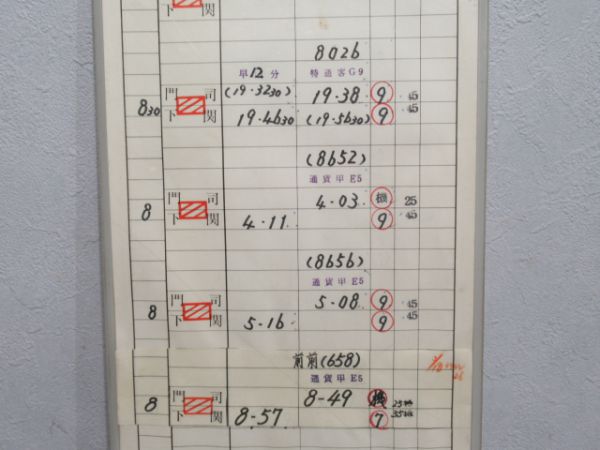 関
8026
早12分 特通客G9
門 司 (19.3230) 19.38 9 45
830
下 関 19.4630 (19.5630) 9 45
(8652)
通貨甲E5
門 司 4.03 機 25
8
下 関 4.11 9 45
(8656)
通貨甲E5
門 司 5-08 9 45
8
下 関 5-16 9 45
前前(658)
通貨甲E5
門 司 8-49
8
下 関 8-57 7